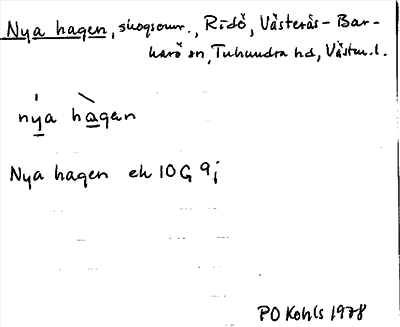 Nya hagen, skogsomr., Ridö, Västerås-Bar-
karö sn, Tuhundra hd, Västm.l.
nya hagen
Nya hagen ek 10G 9j
PO Kohls 1978